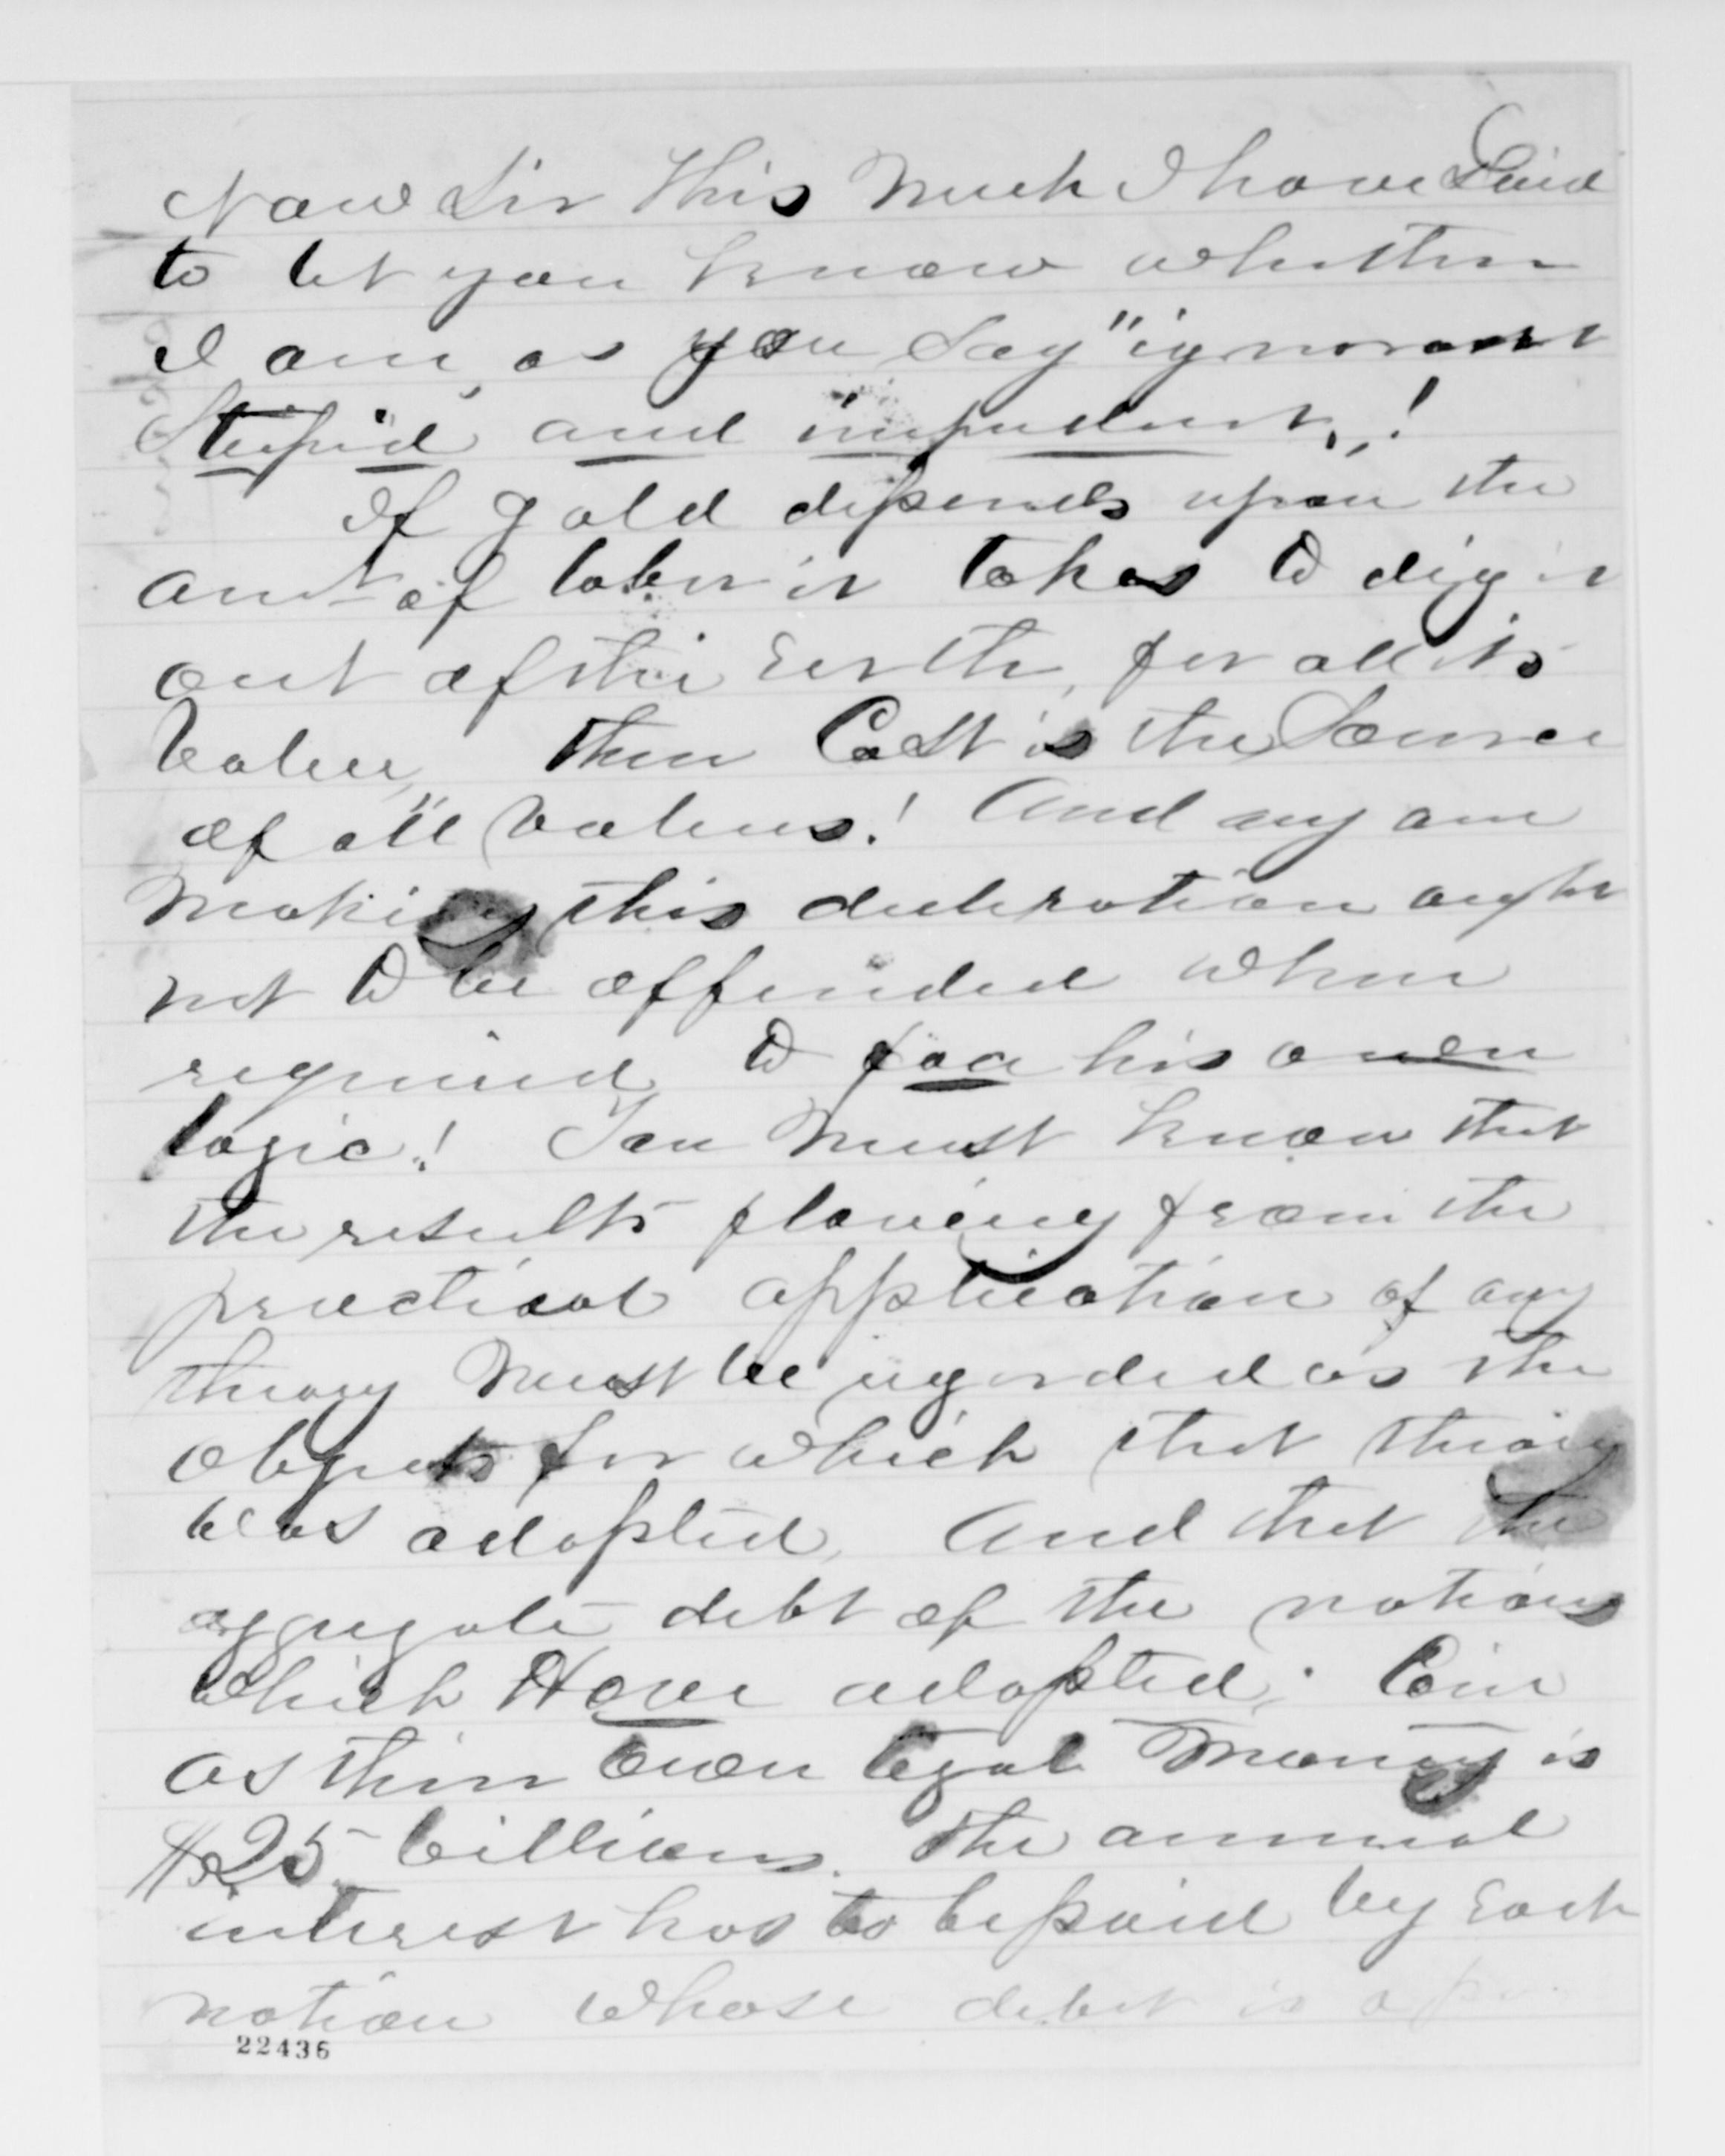 Now Sir this Much I have Said
to let you know whether
I am, as you Say "ignorant
Stupid" and "impudent"!
If gold depends upon the
amt of labor it takes to dig it
out of the Earth, for all its
Value, then Cost is the Source
of all Values! And any one
Making this decleration ought
not to be offended when
required to face his own
logic! You Must know that
the results flowing from the
practical application of any
theory Must be regarded as the
objects for which that theory
was adopted, And that the
aggregate debt of the nations
which Have adopted, Coin
as their own legal Money is
$25 billions. The annual
interest has to be paid by Each
nation whose debt is a
22436